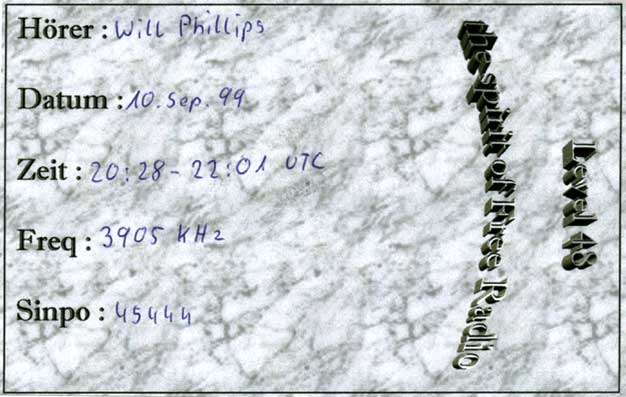 Hörer : Will Phillips
Datum : 10. Sep. 99
Zeit : 20:28 - 22:01 UTC
Freq : 3905 KHz
Sinpo : 45444
the spirit of Free Radio
Level 48